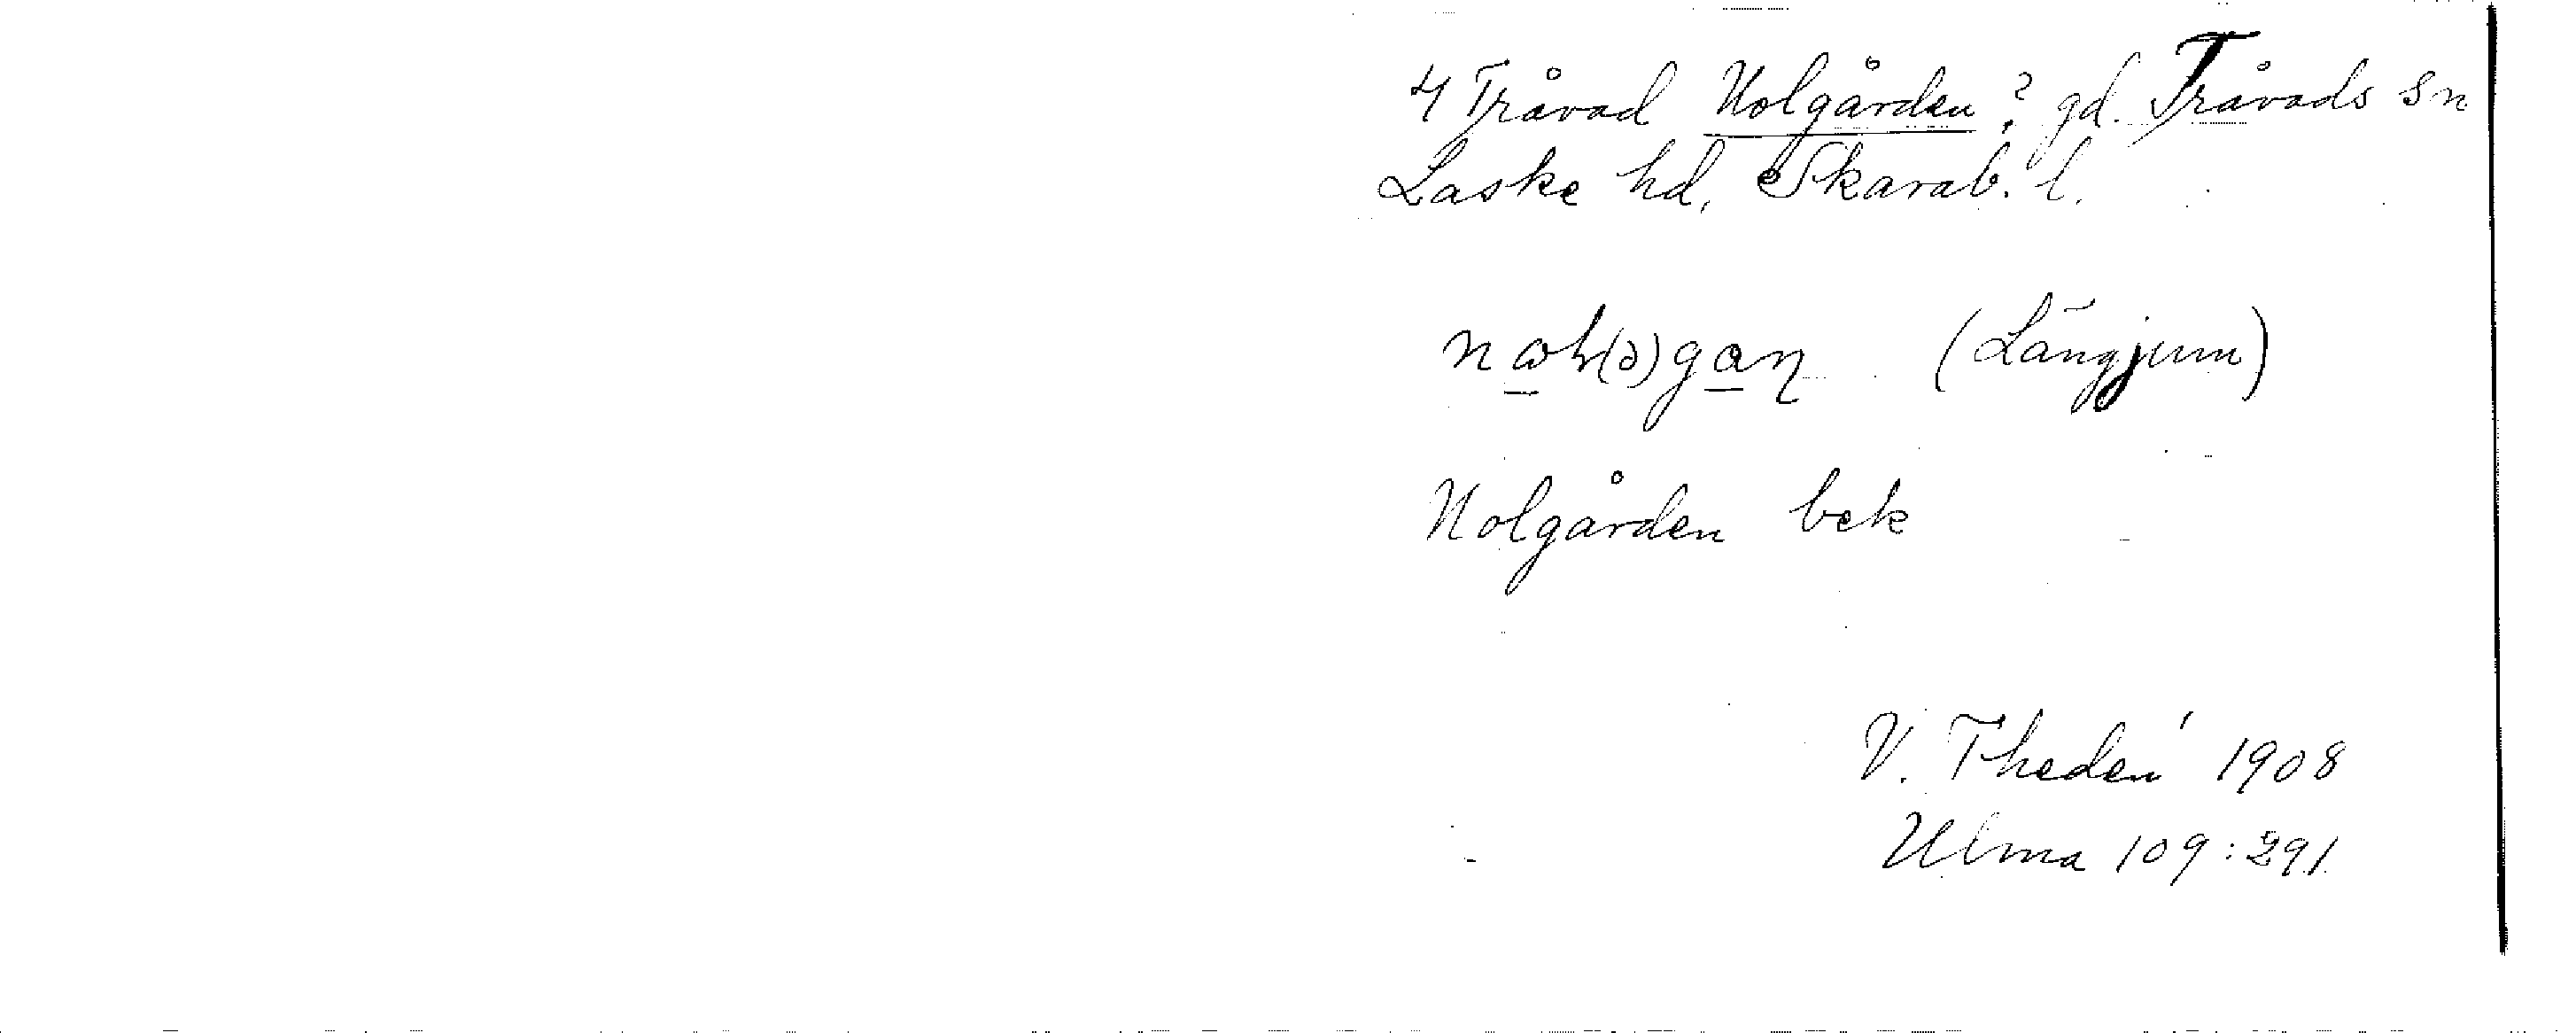 4 Tråvad Nolgården? gd. Tråvads sn
Laske hd, Skarab. l.
(Längjum)
Nolgården bek
V. Thedén 1908
Ulma 109:291